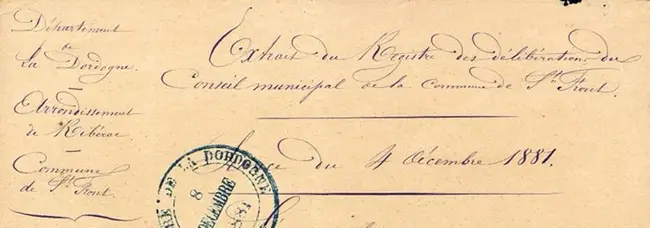 Département
de
La Dordogne.
Arrondissement
de Ribérac
Commune
de St. Front
Extrait du Registre des délibérations du
Conseil municipal de la commune de St. Front.
du 4 décembre 1881.
RE DE LA DORDOGNE
8
DECEMBRE
1881